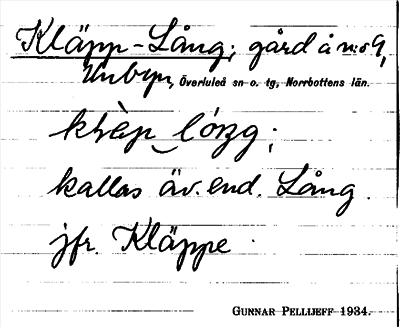 Kläpp-Lång; gård å n:o 9,
Unbyn, Överluleå sn o. tg, Norrbottens län.
kallas äv. end. Lång.
jfr. Kläppe
GUNNAR PELLIJEFF 1934.